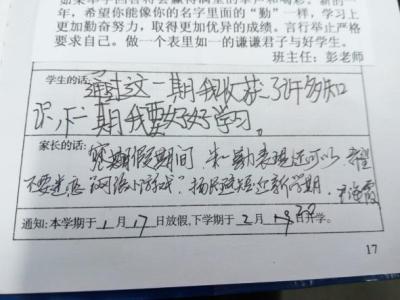 如果举手回答将会赢得满堂的掌声和喝彩。新的一
年，希望你能像你的名字里面的“勤”一样，学习上
更加勤奋努力，取得更加优异的成绩。言行举止严格
要求自己。做一个表里如一的谦谦君子与好学生。
班主任：彭老师
学生的话：通过这一期我收获了许多知
识，下一期我要好好学习。
家长的话：寒期假期间，朱一勤表现还可以，希望
不要迷恋“网络小游戏”扬长避短迎新学期。
通知：本学期于1月17日放假，下学期于2月 开学。
17